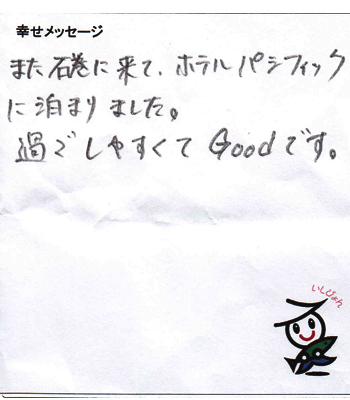 幸せメッセージ
また石巻に来て、ホテルパシフィック
に泊まりました。
過ごしやすくてGoodです。
いしぴょん